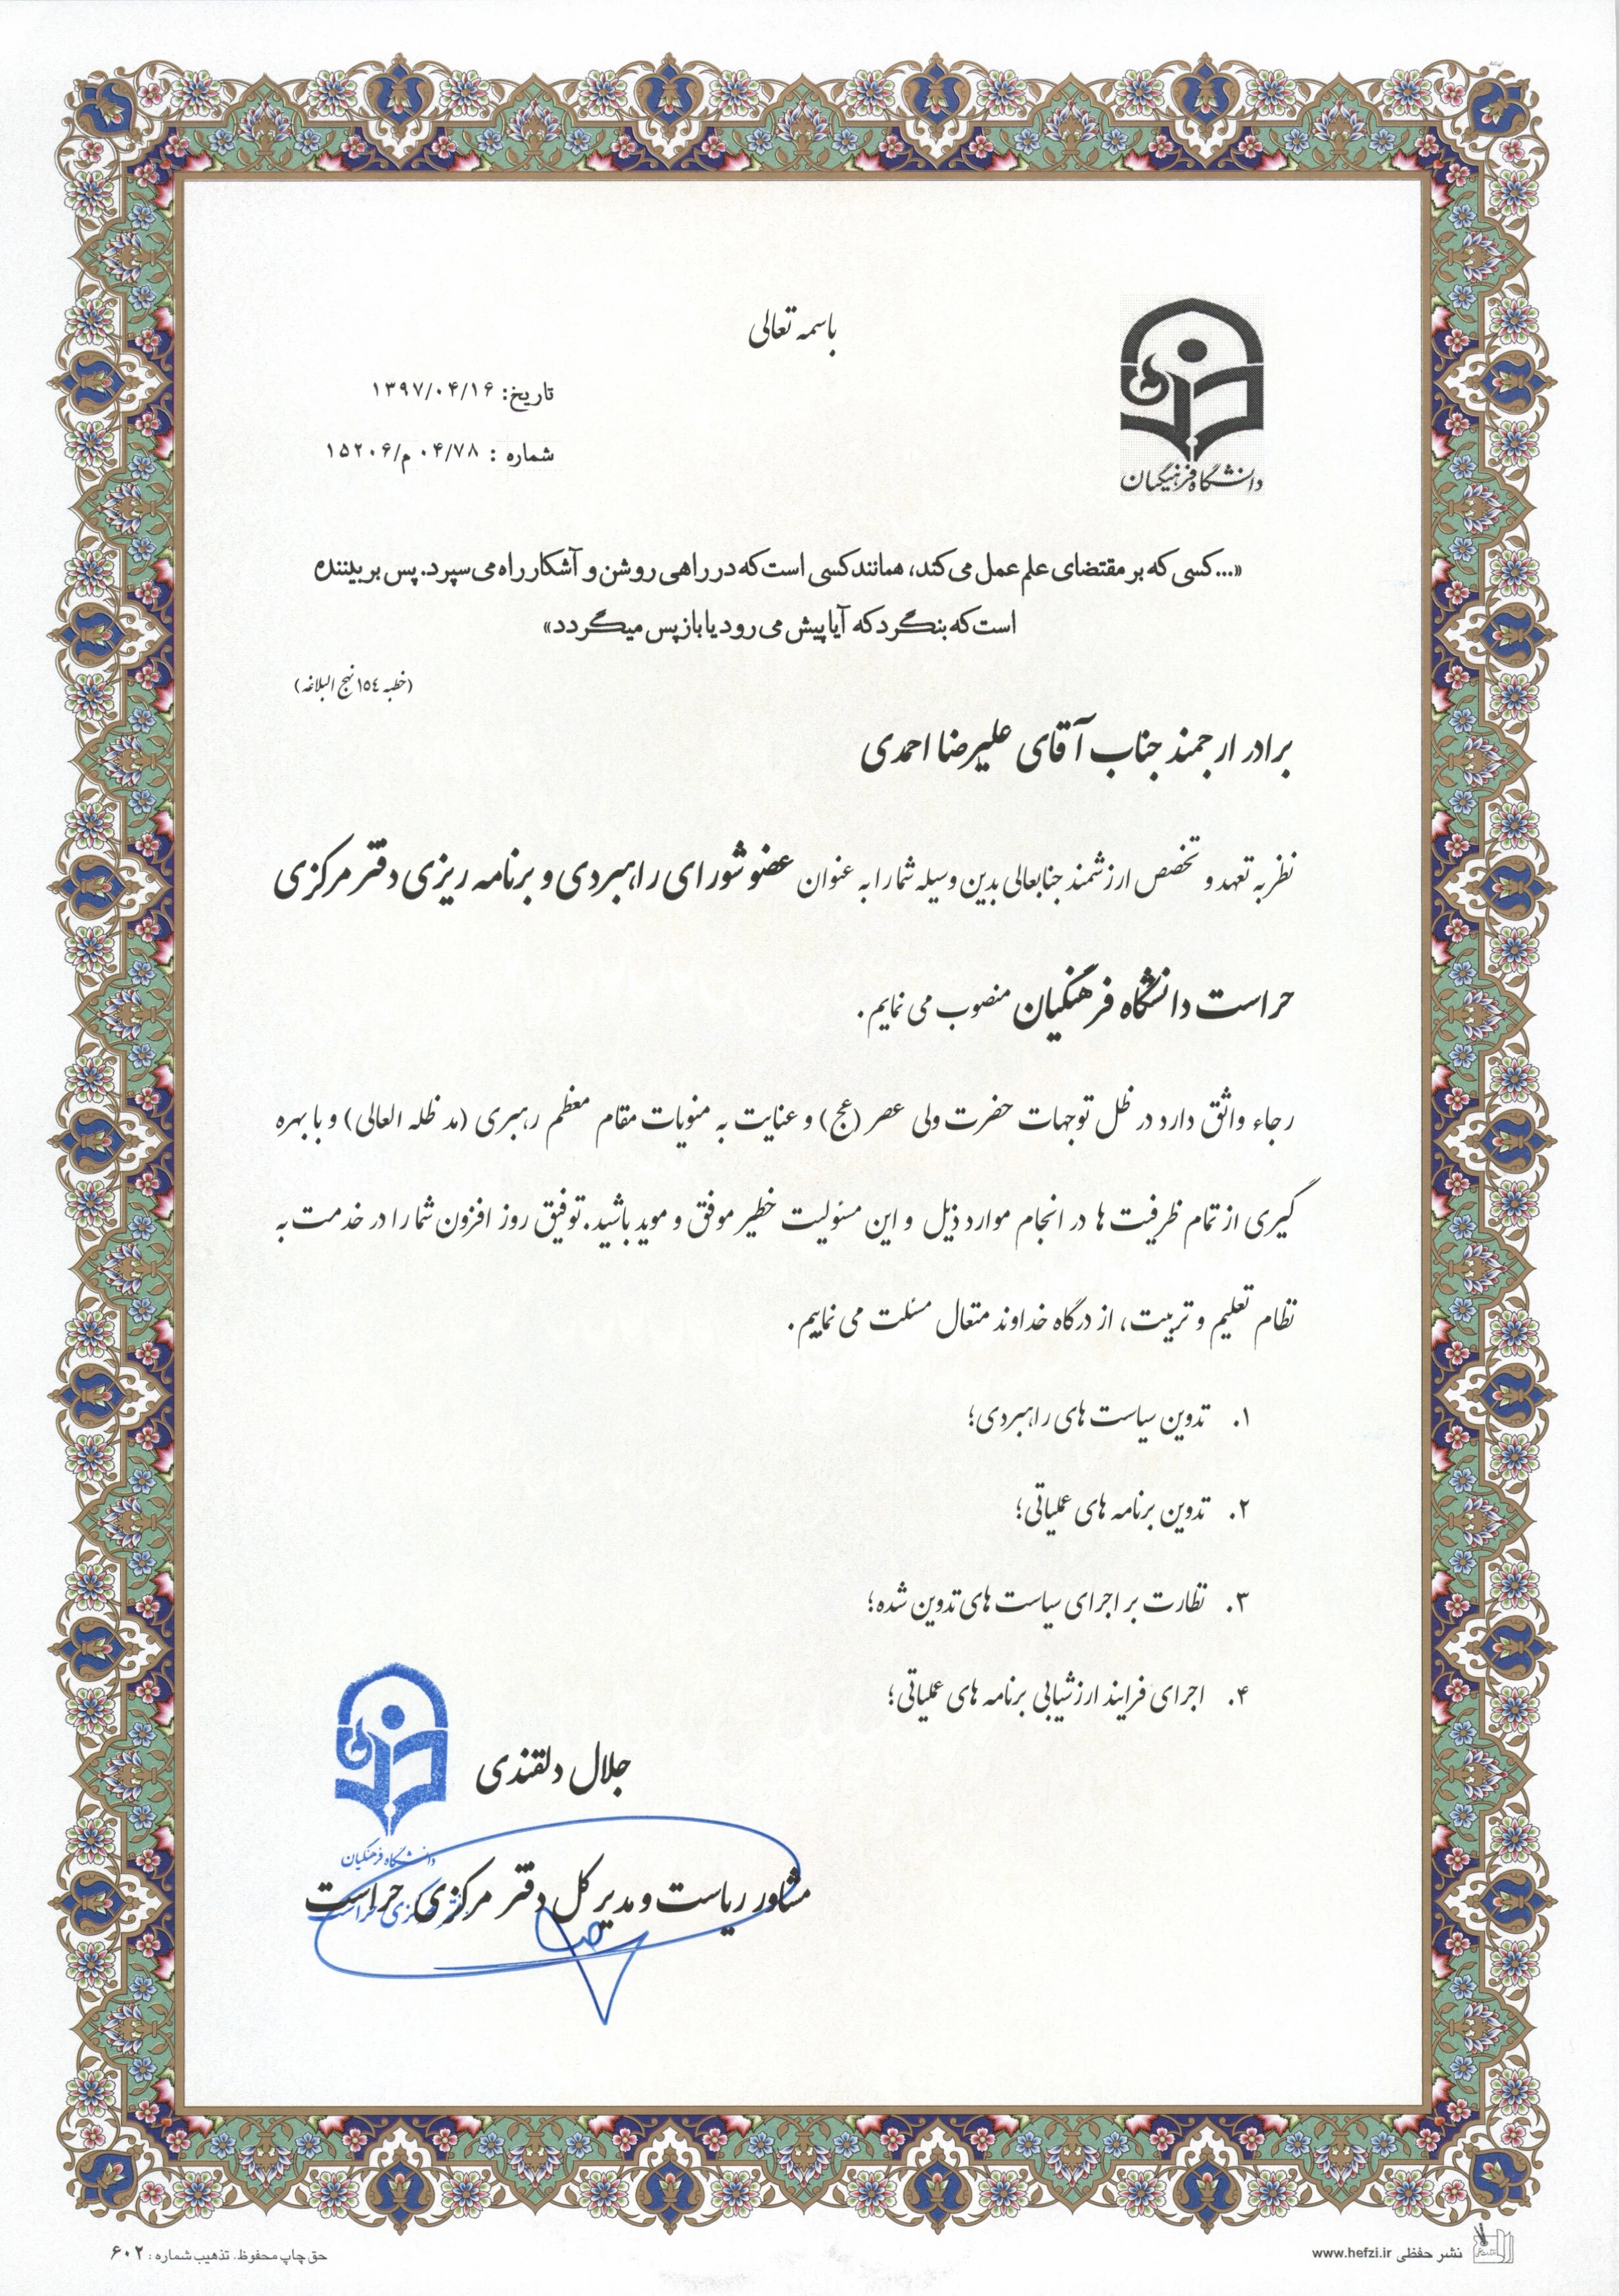 باسمه تعالی
تاریخ: ۱۳۹۷/۰۴/۱۶
شماره : ۰۴/۷۸ م/۱۵۲۰۶
دانشگاه فرهنگیان
«...کسی که بر مقتضای علم عمل می کند، همانند کسی است که در راهی روشن و آشکار راه می سپرد. پس بر بیننده
است که بنگرد که آیا پیش می رود یا باز پس میگردد»
(خطبه ١٥٤ نهج البلاغه)
برادر ارجمند جناب آقای علیرضا احمدی
نظر به تعهد و تخصص ارزشمند جنابعالی بدین وسیله شما را به عنوان عضو شورای راهبردی و برنامه ریزی دفتر مرکزی
حراست دانشگاه فرهنگیان منصوب می نمایم.
رجاء واثق دارد در ظل توجهات حضرت ولی عصر (عج) و عنایت به منویات مقام معظم رهبری (مد ظله العالی) و با بهره
گیری از تمام ظرفیت ها در انجام موارد ذیل و این مسئولیت خطیر موفق و موید باشید. توفیق روز افزون شما را در خدمت به
نظام تعلیم و تربیت، از درگاه خداوند متعال مسئلت می نماییم.
۱. تدوین سیاست های راهبردی؛
۲. تدوین برنامه های عملیاتی؛
۳. نظارت بر اجرای سیاست های تدوین شده؛
۴. اجرای فرایند ارزشیابی برنامه های عملیاتی؛
جلال دلقندی
دانشگاه فرهنگیان
مشاور ریاست و مدیر کل دفتر مرکزی حراست
دفتر مرکزی حراست
نشر حفظی www.hefzi.ir
حق چاپ محفوظ. تذهیب شماره : ۶۰۲